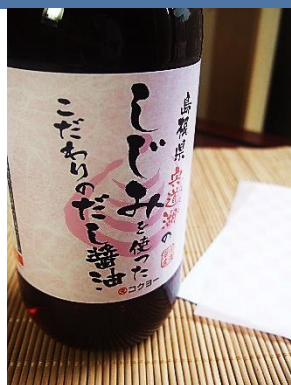 島根県 宍道湖の
しじみを使った
こだわりのだし醤油
コクヨー